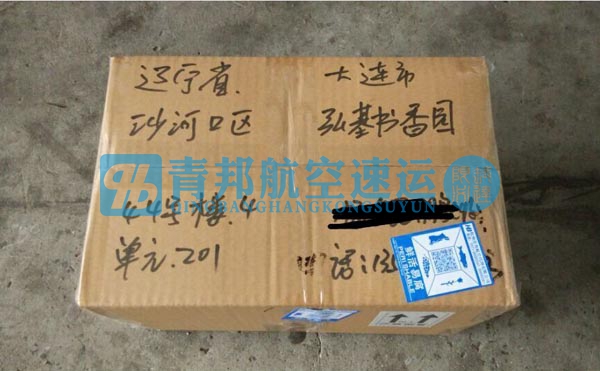 辽宁省. 大连市
沙河口区 弘基书香园
青邦航空速运
QINGBANGHANGKONGSUYUN
44号楼.4
单元.201
话:13
鲜活易腐
PERISHABLE